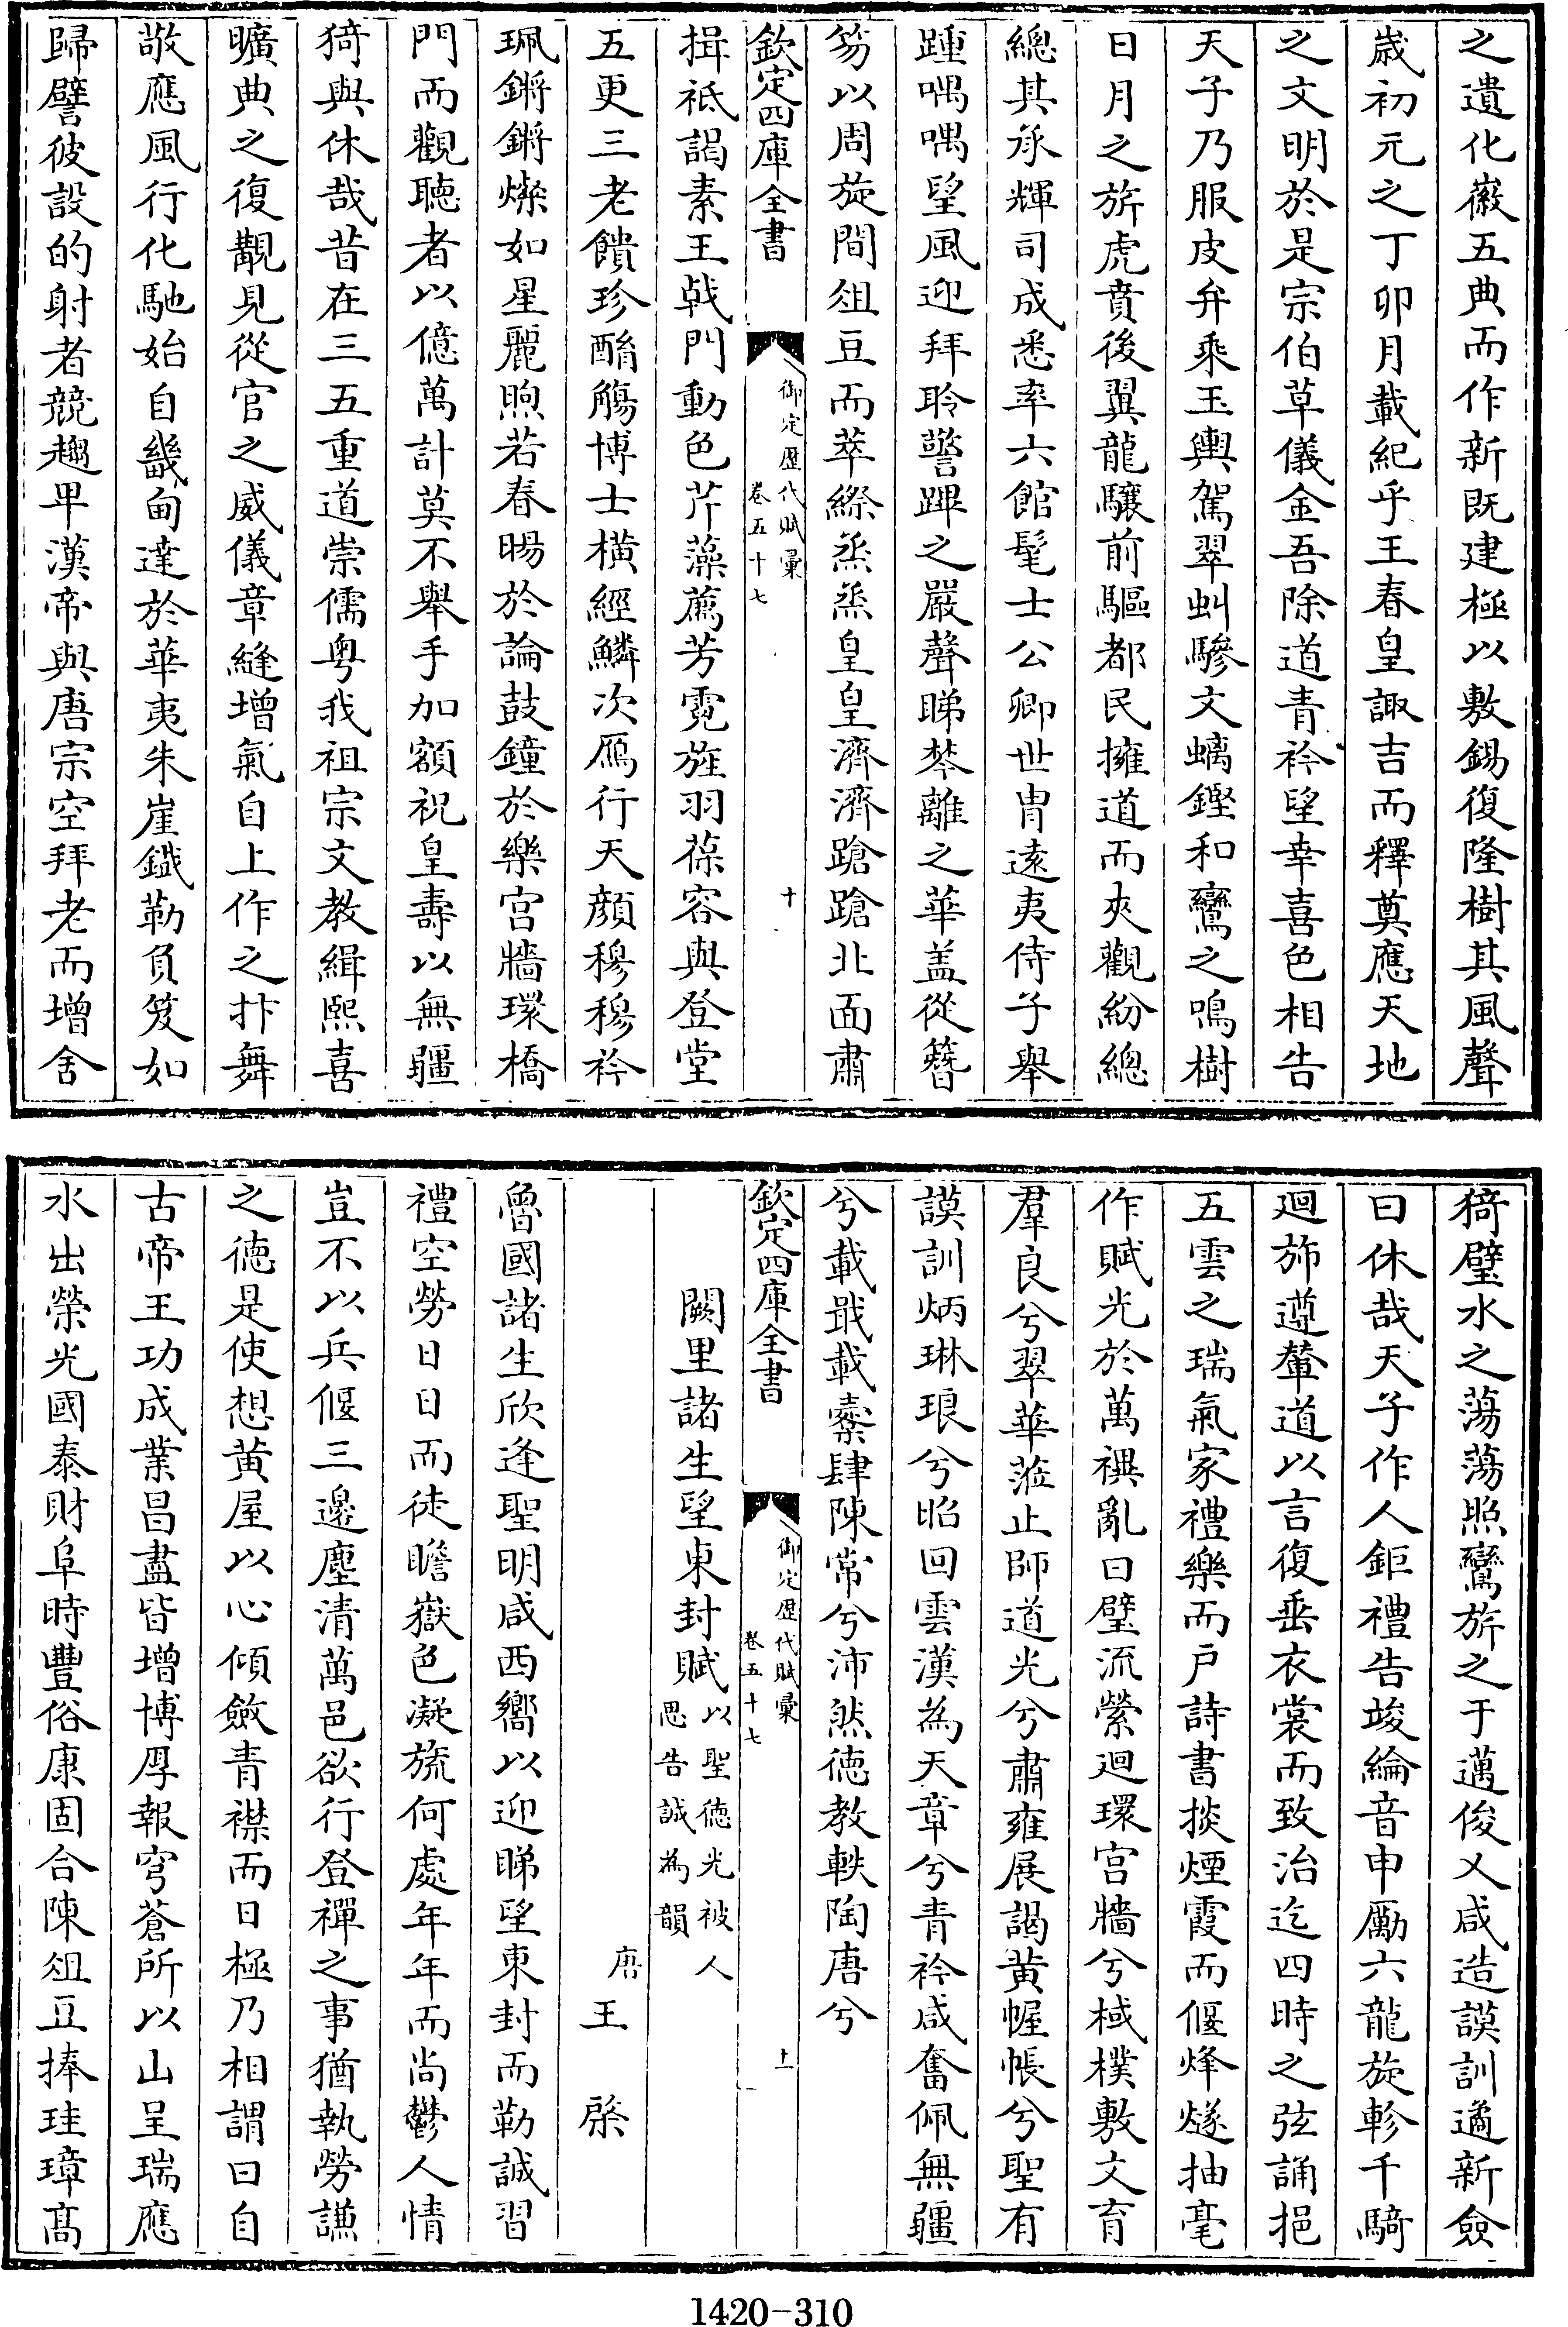 之遺化𡽪五典而作新既建極以敷錫復隆樹其風聲
歲初元之丁卯月載紀乎王春皇諏吉而釋奠應天地
之文明於是宗伯草儀金吾除道青衿望幸喜色相告
天子乃服皮弁乘玉輿駕翠虯驂文螭鏗和鸞之鳴樹
日月之旂虎賁後翼龍驤前驅都民擁道而夾觀紛總
總其承輝司成悉率六館髦士公卿世胄遠夷侍子舉
踵喁喁望風迎拜聆警蹕之嚴聲睇棽離之華蓋從簪
笏以周旋間俎豆而萃綵烝烝皇皇濟濟蹌蹌北面肅
欽定四庫全書 御定歷代賦彙 卷五十七 十
揖祗謁素王戟門動色芹藻薦芳霓旌羽葆容與登堂
五更三老饋珍酳觴博士橫經鱗次鴈行天顔穆穆衿
珮鏘鏘燦如星麗煦若春暘於論鼓鐘於樂宫牆環橋
門而觀聽者以億萬計莫不舉手加額祝皇壽以無疆
猗與休哉昔在三五重道崇儒粤我祖宗文教緝熙喜
曠典之復覯見從官之威儀章縫增氣自上作之抃舞
敬應風行化馳始自畿甸達於華夷朱崖鐵勒負笈如
歸譬彼設的射者競趨卑漢帝與唐宗空拜老而增舍
猗璧水之蕩蕩照鸞旂之于邁俊乂咸造謨訓遹新僉
曰休哉天子作人鉅禮告竣綸音申勵六龍旋軫千騎
迴旆遵輦道以言復垂衣裳而致治迄四時之弦誦挹
五雲之瑞氣家禮樂而户詩書掞煙霞而偃烽燧抽毫
作賦光於萬禩亂曰璧流縈迴環宫牆兮棫樸敷文育
羣良兮翠華蒞止師道光兮肅雍展謁黄幄帳兮聖有
謨訓炳琳琅兮昭回雲漢為天章兮青衿咸奮佩無疆
兮載戢載櫜肆陳常兮沛然德教軼陶唐兮
欽定四庫全書 御定歷代賦彙 卷五十七 十一
闕里諸生望東封賦 以聖德光被人思告誠為韻
唐 王棨
魯國諸生欣逢聖明咸西嚮以迎睇望東封而勒誠習
禮空勞日日而徒瞻嶽色凝旒何處年年而尚鬱人情
豈不以兵偃三邊塵清萬邑欲行登禪之事猶執勞謙
之德是使想黄屋以心傾斂青襟而日極乃相謂曰自
古帝王功成業昌盡皆增博厚報穹蒼所以山呈瑞應
水出榮光國泰財阜時豐俗康固合陳俎豆捧珪璋髙
1420-310